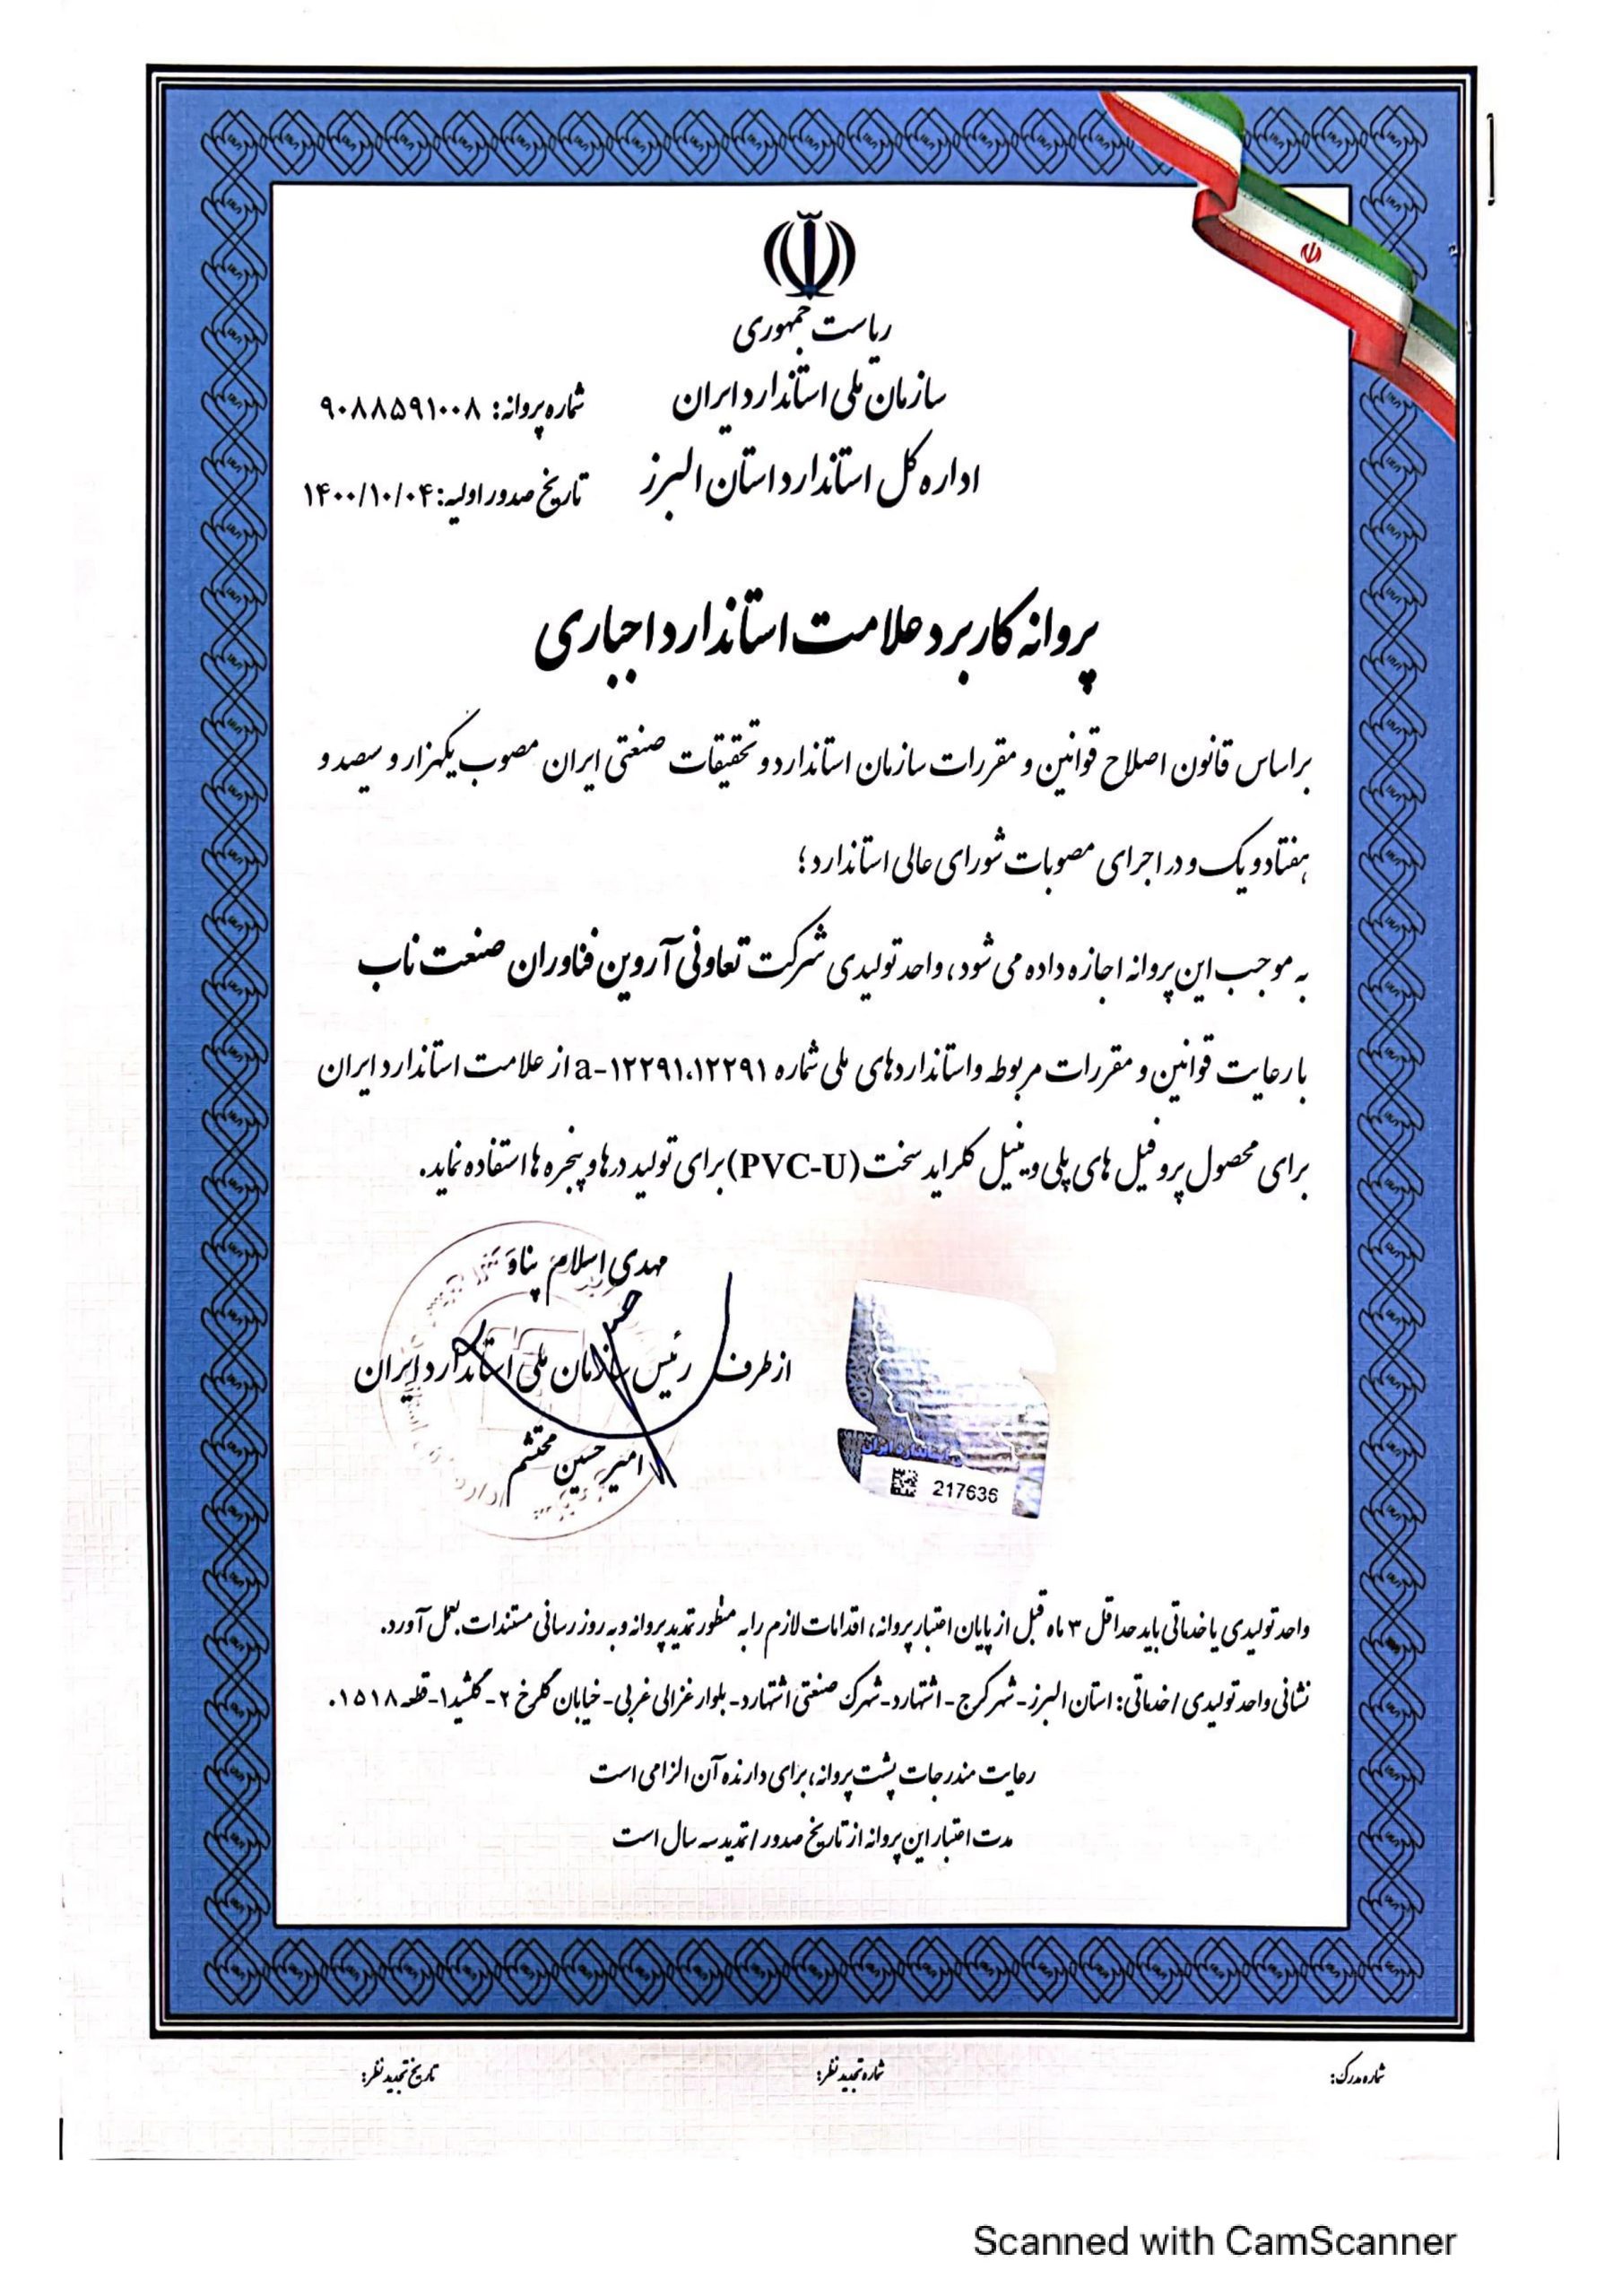 ریاست جمهوری
سازمان ملی استاندارد ایران
شماره پروانه: ۹۰۸۸۵۹۱۰۰۸
اداره کل استاندارد استان البرز
تاریخ صدور اولیه: ۱۴۰۰/۱۰/۰۴
پروانه کاربرد علامت استاندارد اجباری
براساس قانون اصلاح قوانین و مقررات سازمان استاندارد و تحقیقات صنعتی ایران مصوب یکهزار و سیصد و
هفتاد و یک و در اجرای مصوبات شورای عالی استاندارد؛
به موجب این پروانه اجازه داده می شود، واحد تولیدی شرکت تعاونی آروین فناوران صنعت ناب
با رعایت قوانین و مقررات مربوطه و استانداردهای ملی شماره ۱۲۲۹۱،۱۲۲۹۱-a از علامت استاندارد ایران
برای محصول پروفیل های پلی وینیل کلراید سخت (PVC-U) برای تولید درها و پنجره ها استفاده نماید.
مهدی اسلام پناه
از طرف رئیس سازمان ملی استاندارد ایران
امیر حسین محتشم
217636
واحد تولیدی یا خدماتی باید حداقل ۳ ماه قبل از پایان اعتبار پروانه، اقدامات لازم را به منظور تمدید پروانه و به روز رسانی مستندات بعمل آورد.
نشانی واحد تولیدی / خدماتی: استان البرز - شهر کرج - اشتهارد - شهرک صنعتی اشتهارد - بلوار غزالی غربی - خیابان گلرخ ۲ - گلشید۱ - قطعه ۱۵۱۸.
رعایت مندرجات پشت پروانه، برای دارنده آن الزامی است
مدت اعتبار این پروانه از تاریخ صدور / تمدید سه سال است
شماره مدرک:
شماره تجدید نظر:
تاریخ تجدید نظر:
Scanned with CamScanner